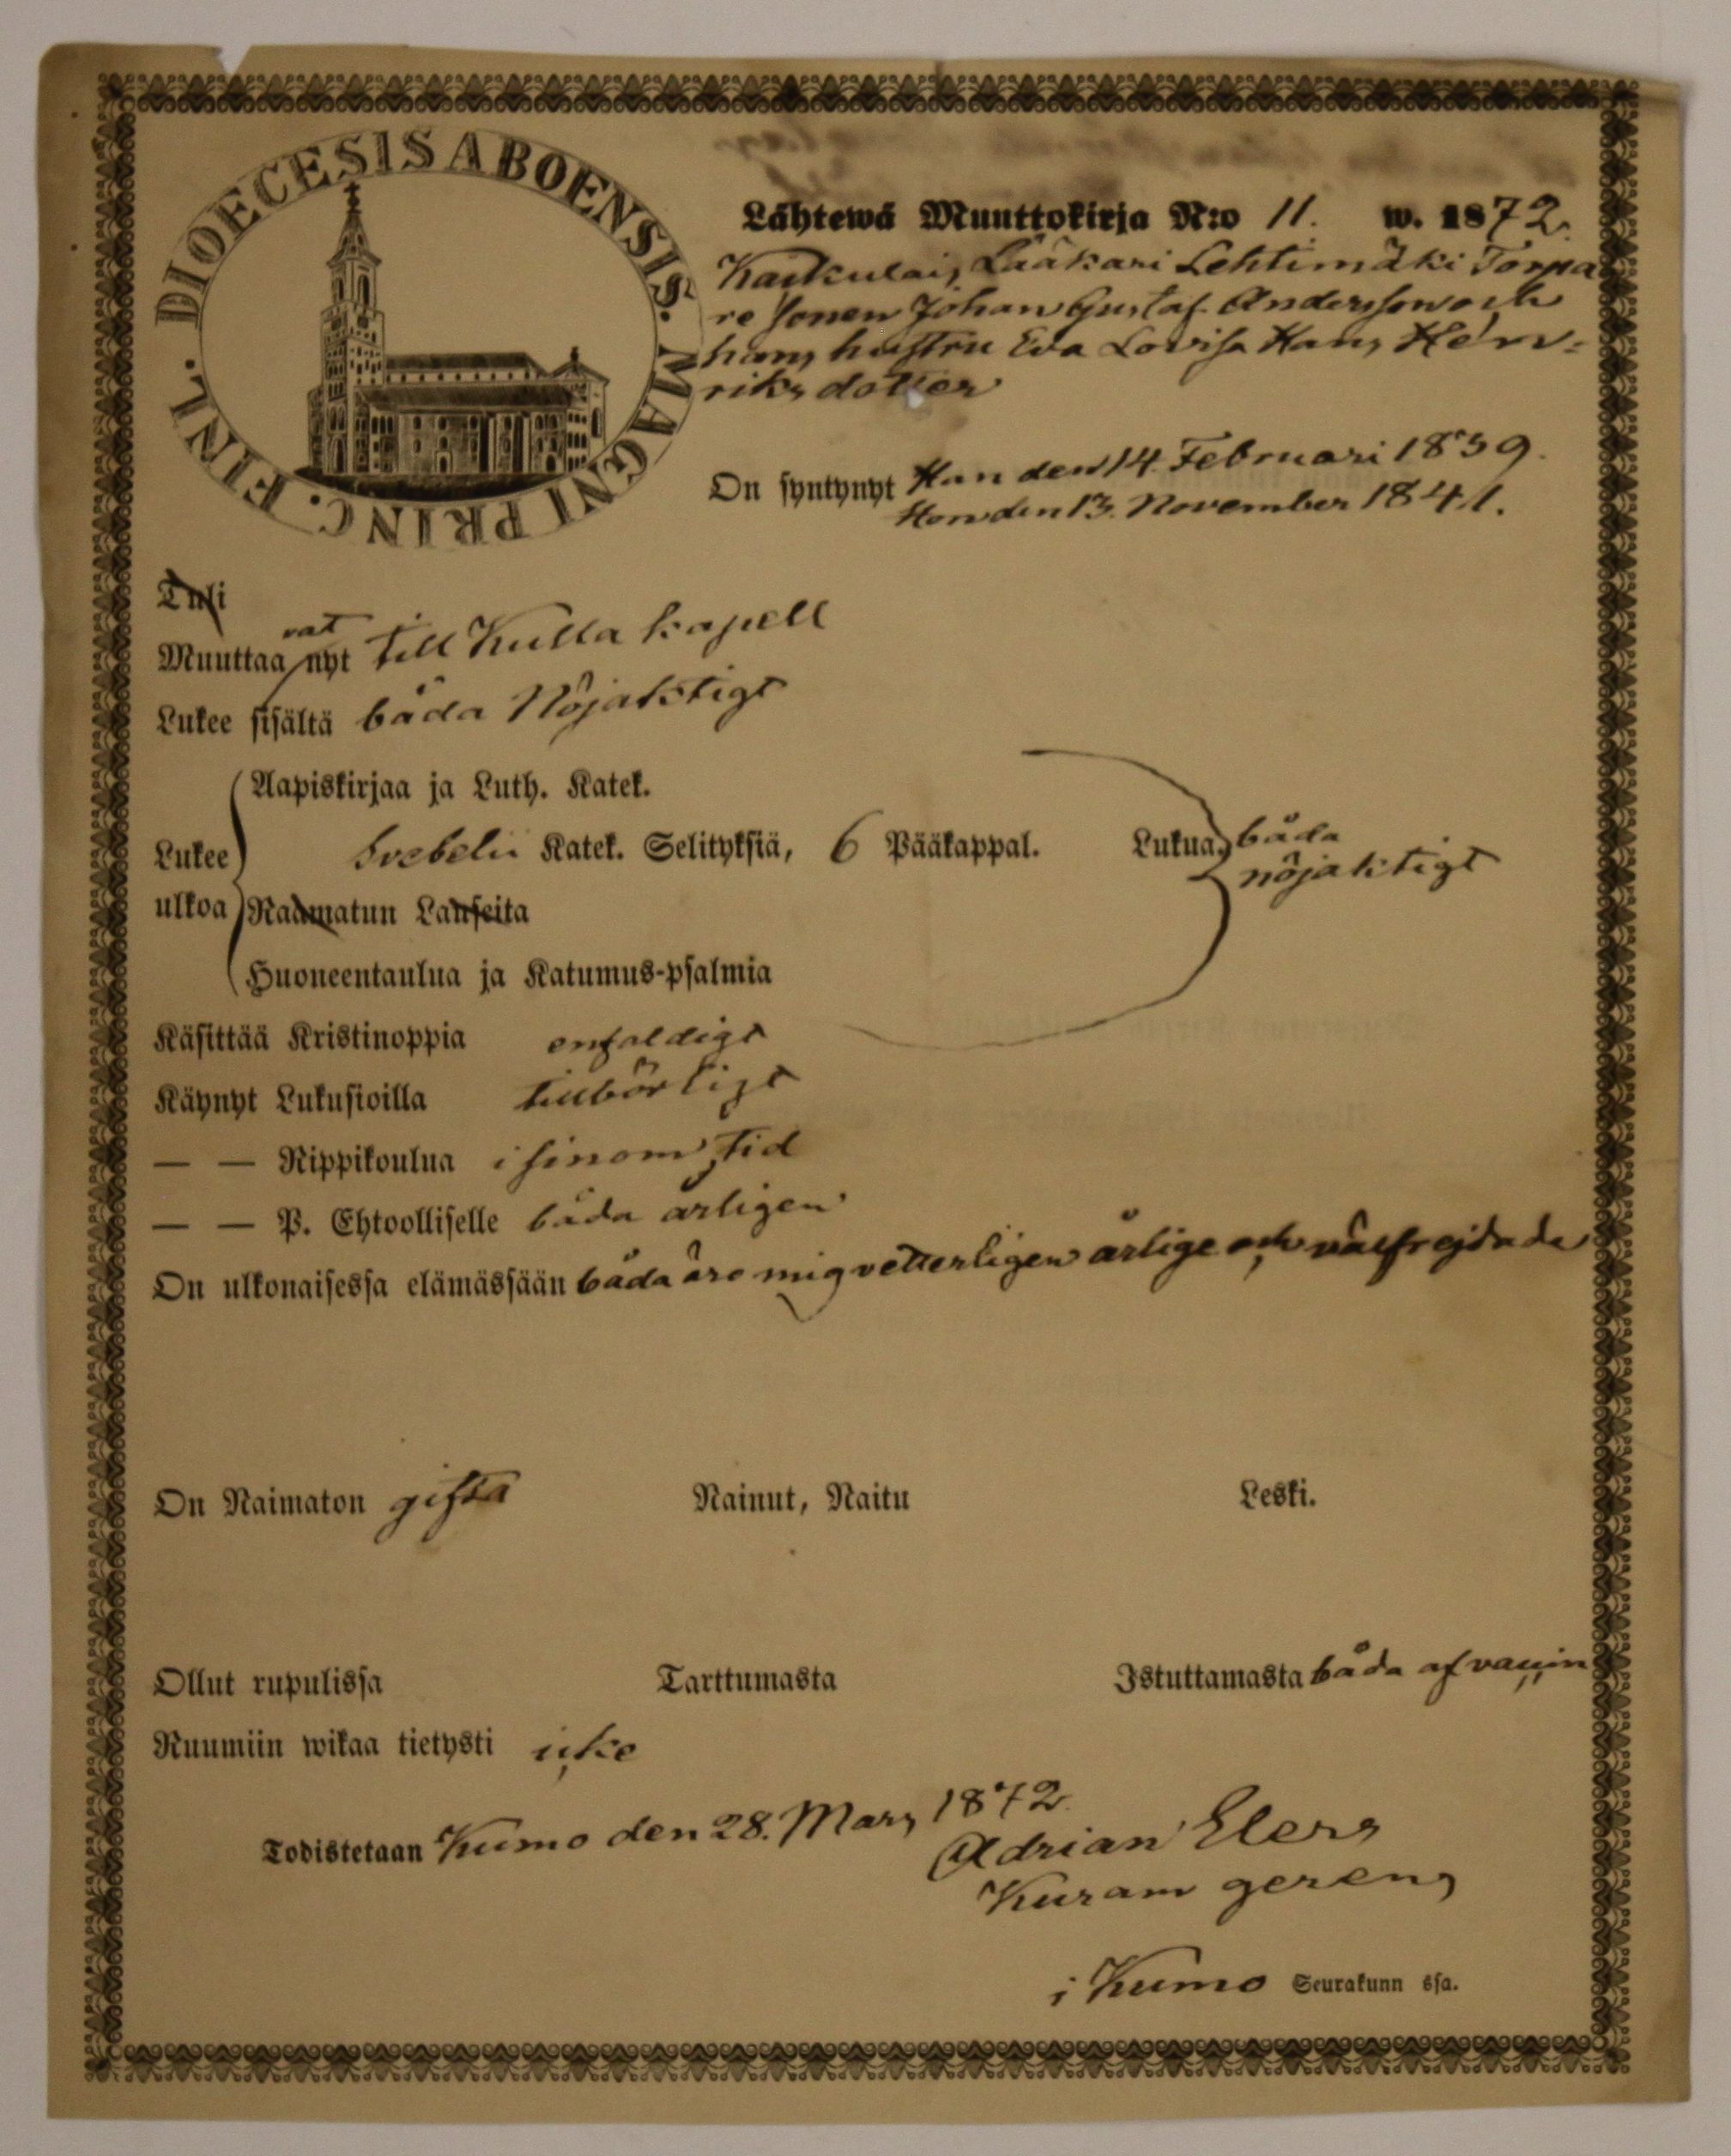 DIOECESIS ABOENSIS. MAGNI PRINC. FINL.
Lähtewä Muuttokirja N:o 11. w. 1872.
Kaukulais, Lääkäri Lehtimäki Torpa
re sonen Johan Gustaf Andersson och
hans hustru Eva Lovisa Hans Hen-
riks dotter
On syntynyt Han den 14. Februari 1839.
Hon den 13. November 1841.
Tuli
vat
Muuttaa nyt till Kulla kapell
Lukee sisältä båda Nöjaktigt
Aapiskirjaa ja Luth. Katek.
Lukee Svebelii Katek. Selityksiä, 6 Pääkappal. Lukua, båda
nöjaktigt
ulkoa Raamatun Lauseita
Huoneentaulua ja Katumus-psalmia
Käsittää Kristinoppia enfaldigt
Käynyt Lukusioilla tillbörligt
— — Rippikoulua i sinom tid
— — P. Ehtoolliselle båda årligen
On ulkonaisessa elämässään båda äro mig vetterligen ärlige och välfrejdade
On Naimaton gifta Nainut, Naitu Leski.
Ollut rupulissa Tarttumasta Istuttamasta båda af vaccin
Ruumiin wikaa tietysti icke
Todistetaan Kumo den 28. Mars 1872.
Adrian Elers
Kuram gerens
i Kumo Seurakunn ssa.